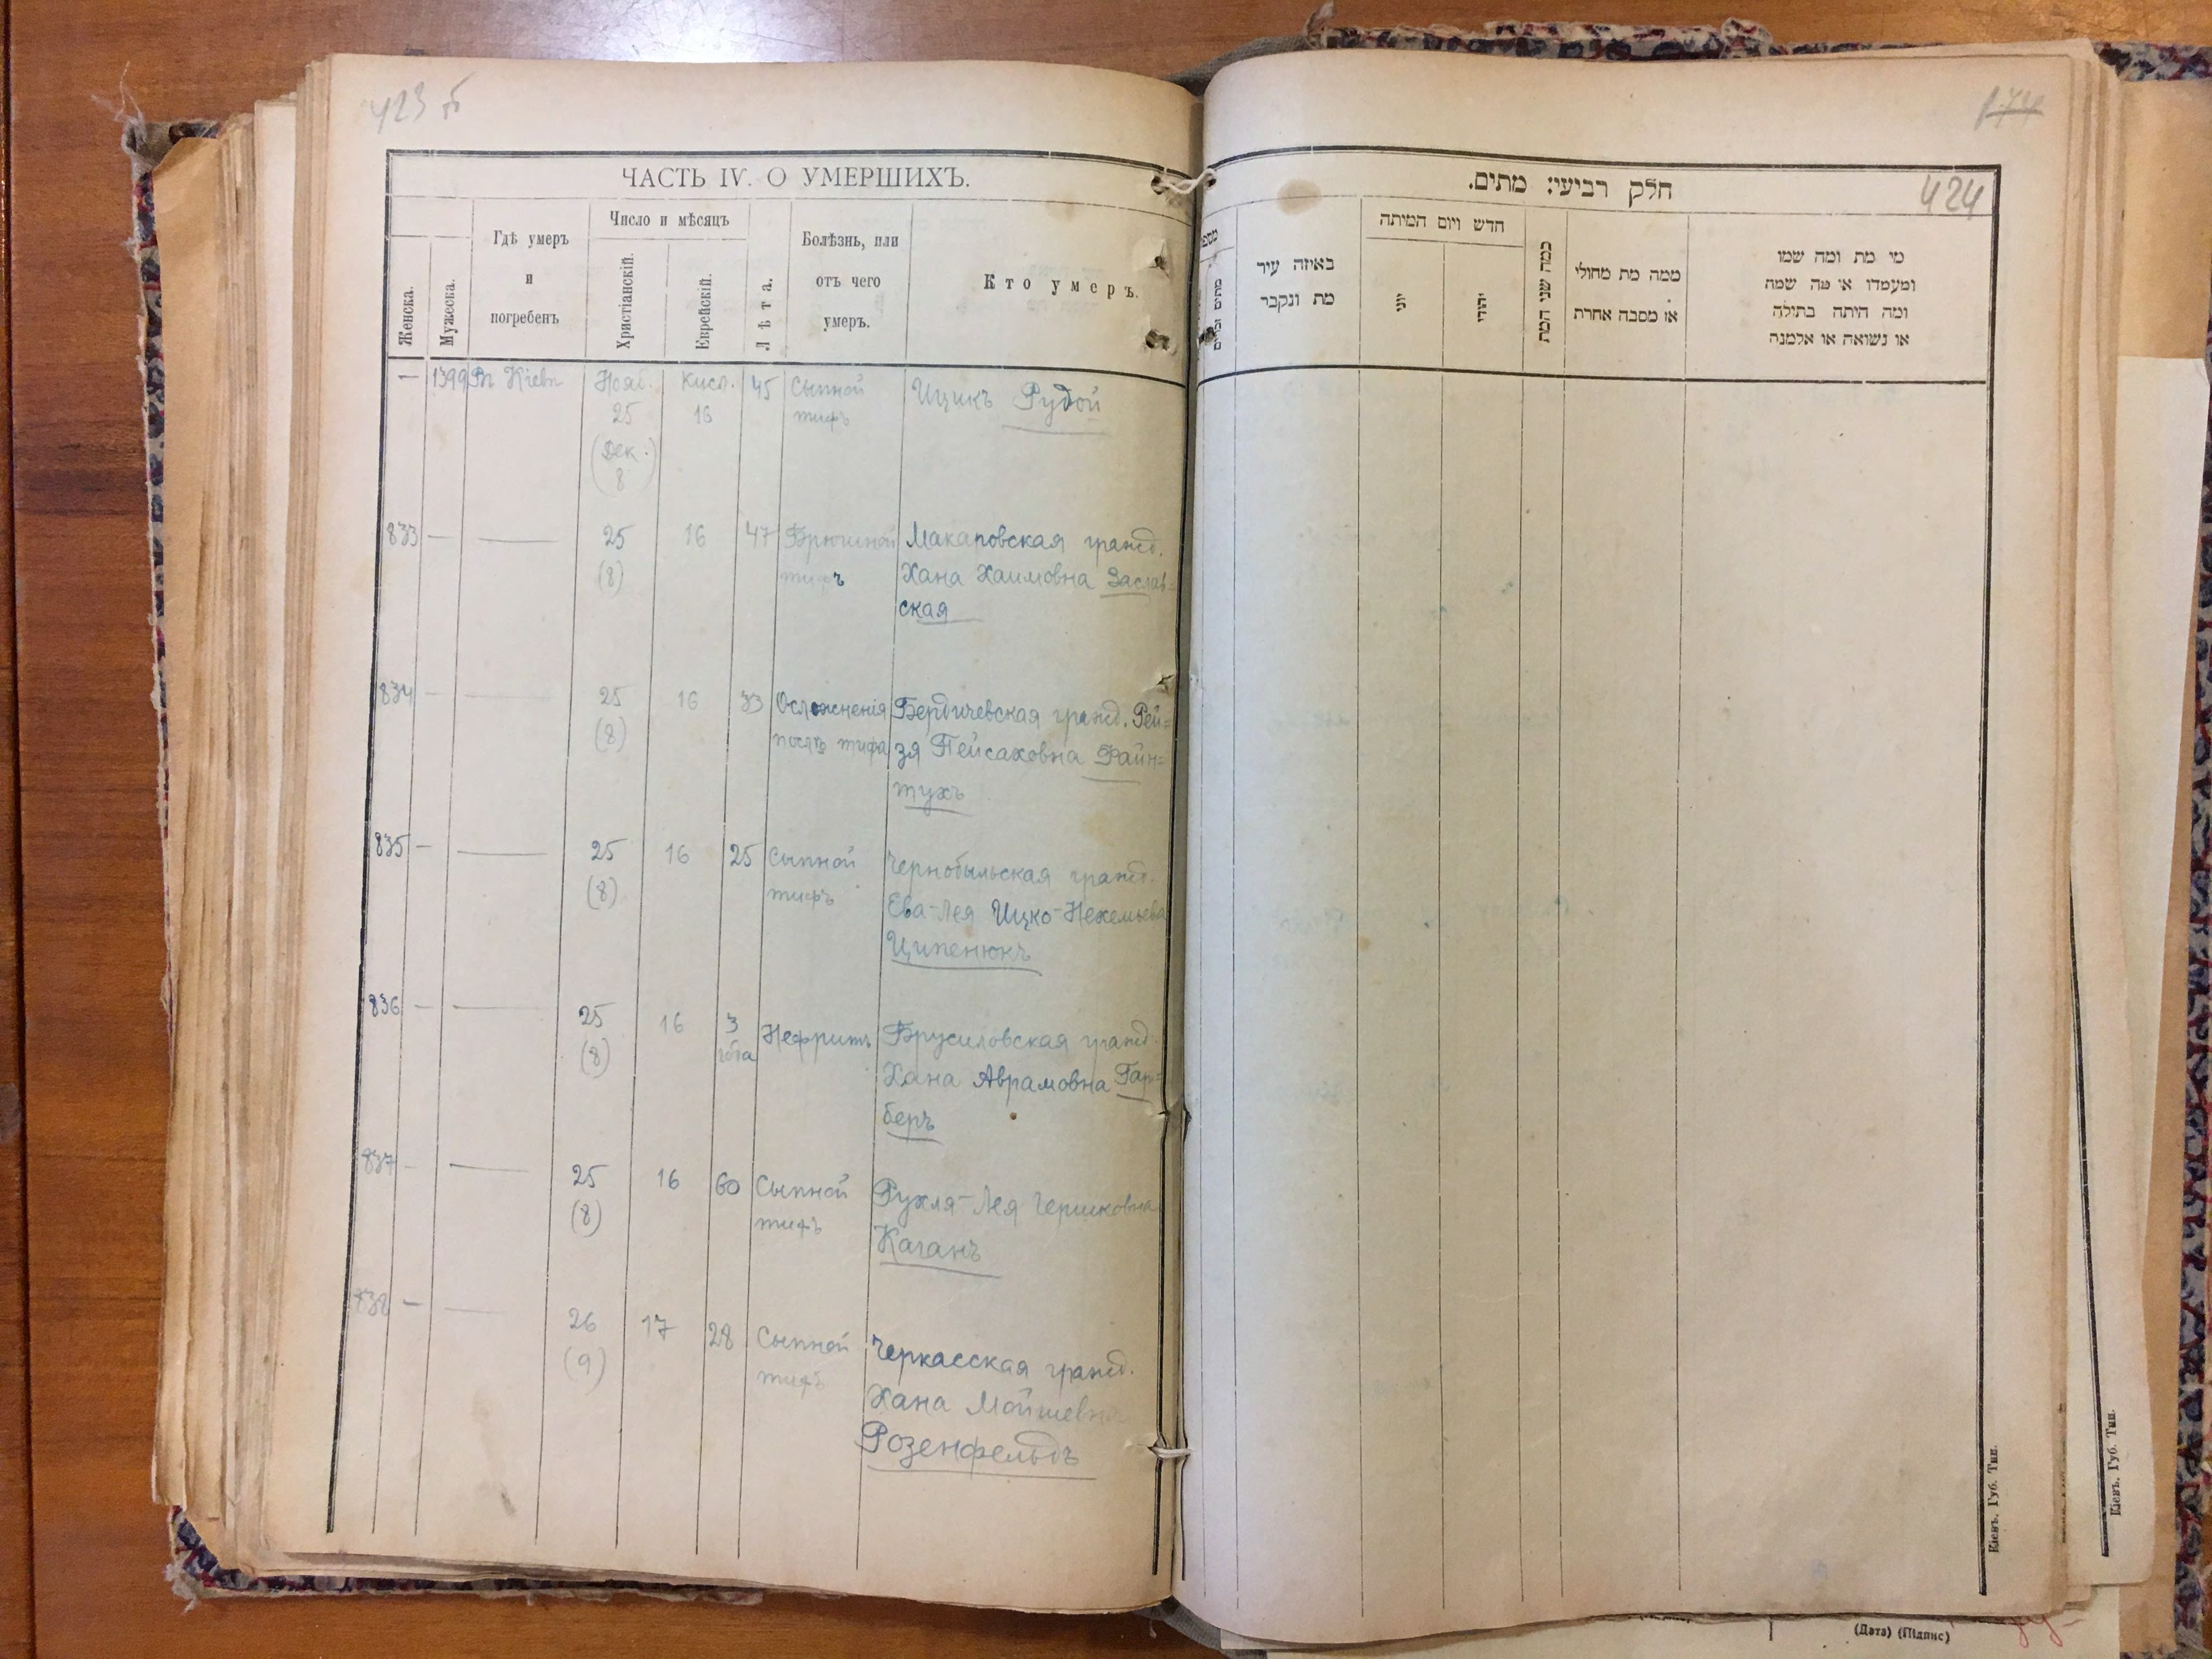 423 б
ЧАСТЬ IV. О УМЕРШИХЪ.
Женска.
Мужеска.
Гдѣ умеръ
и
погребенъ
Число и мѣсяцъ
Христіанскій.
Еврейскій.
Лѣта.
Болѣзнь, или
отъ чего
умеръ.
Кто умеръ.
— 1399 Въ Кіевѣ Нояб. Кисл. 45 Сыпной Ицикъ Рудой
25 16 тифъ
(Дек.
8)
833 — — 25 16 47 Брюшной Макаровская гражд.
(8) тифъ Хана Хаимовна Заслав=
ская
834 — — 25 16 33 Осложненія Бердичевская гражд. Рей=
(8) послѣ тифа зя Пейсаховна Файн=
тухъ
835 — — 25 16 25 Сыпной Чернобыльская гражд.
(8) тифъ Ева-Лея Ицко-Нехемьева
Ципенюкъ
836 — — 25 16 3 Нефритъ Брусиловская гражд.
(8) года Хана Аврамовна Гар=
беръ
837 — — 25 16 60 Сыпной Рухля-Лея Гершковна
(8) тифъ Каганъ
838 — — 26 17 28 Сыпной Черкасская гражд.
(9) тифъ Хана Мойшевна
Розенфельдъ
174
424
חלק רביעי: מתים.
באיזה עיר
מת ונקבר
חדש ויום המיתה
יוני
יהודי
כמה שני המת
ממה מת מחולי
או מסבה אחרת
מי מת ומה שמו
ומעמדו או מה שמה
ומה היתה בתולה
או נשואה או אלמנה
Кіевъ. Губ. Тип.
Кіевъ. Губ. Тип.
(Дата) (Підпис)